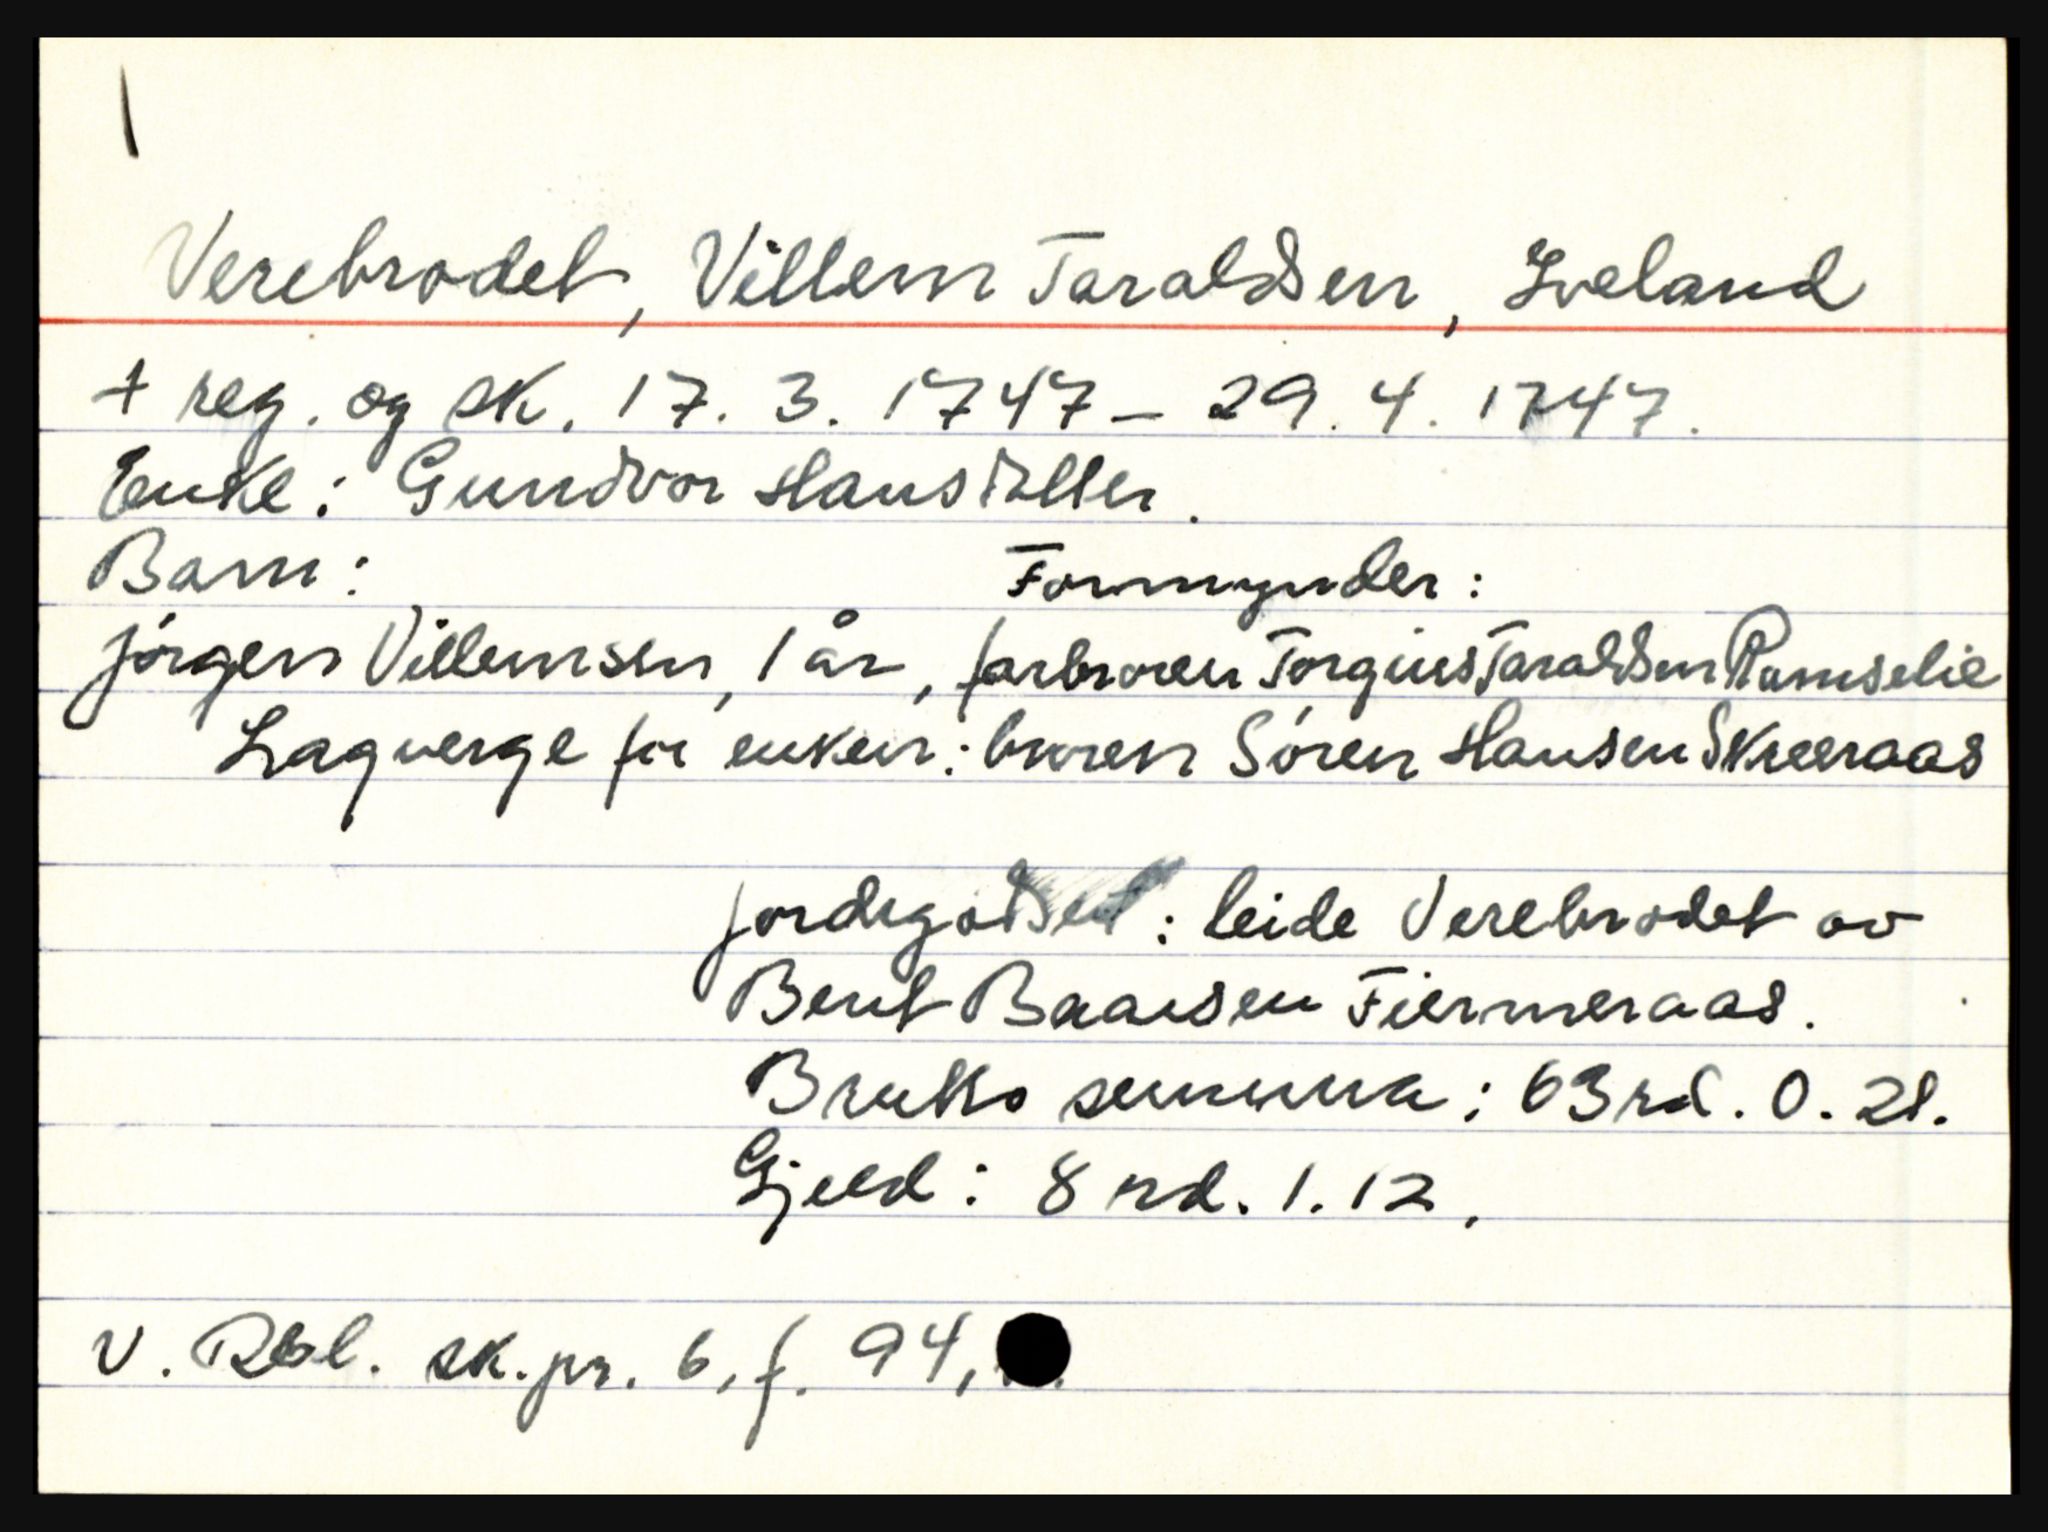 Verebrodet, Villem Taraldsen, Iveland
+ reg. og sk. 17. 3. 1747 - 29. 4. 1747.
Enke: Gundvor Hansdatter.
Barn: Formynder:
Jörgen Villemsen, 1 år, farbroren Torgius Taraldsen Ramselie
Lagverge for enken: broren Sören Hansen Skreeraas
Jordegodset: leide Verebrodet av
Bent Baarsen Fiermeraas.
Brutto summa: 63 rd. 0. 21.
Gjeld: 8 rd. 1. 12.
V. Rbl. sk. pr. 6, f. 94,